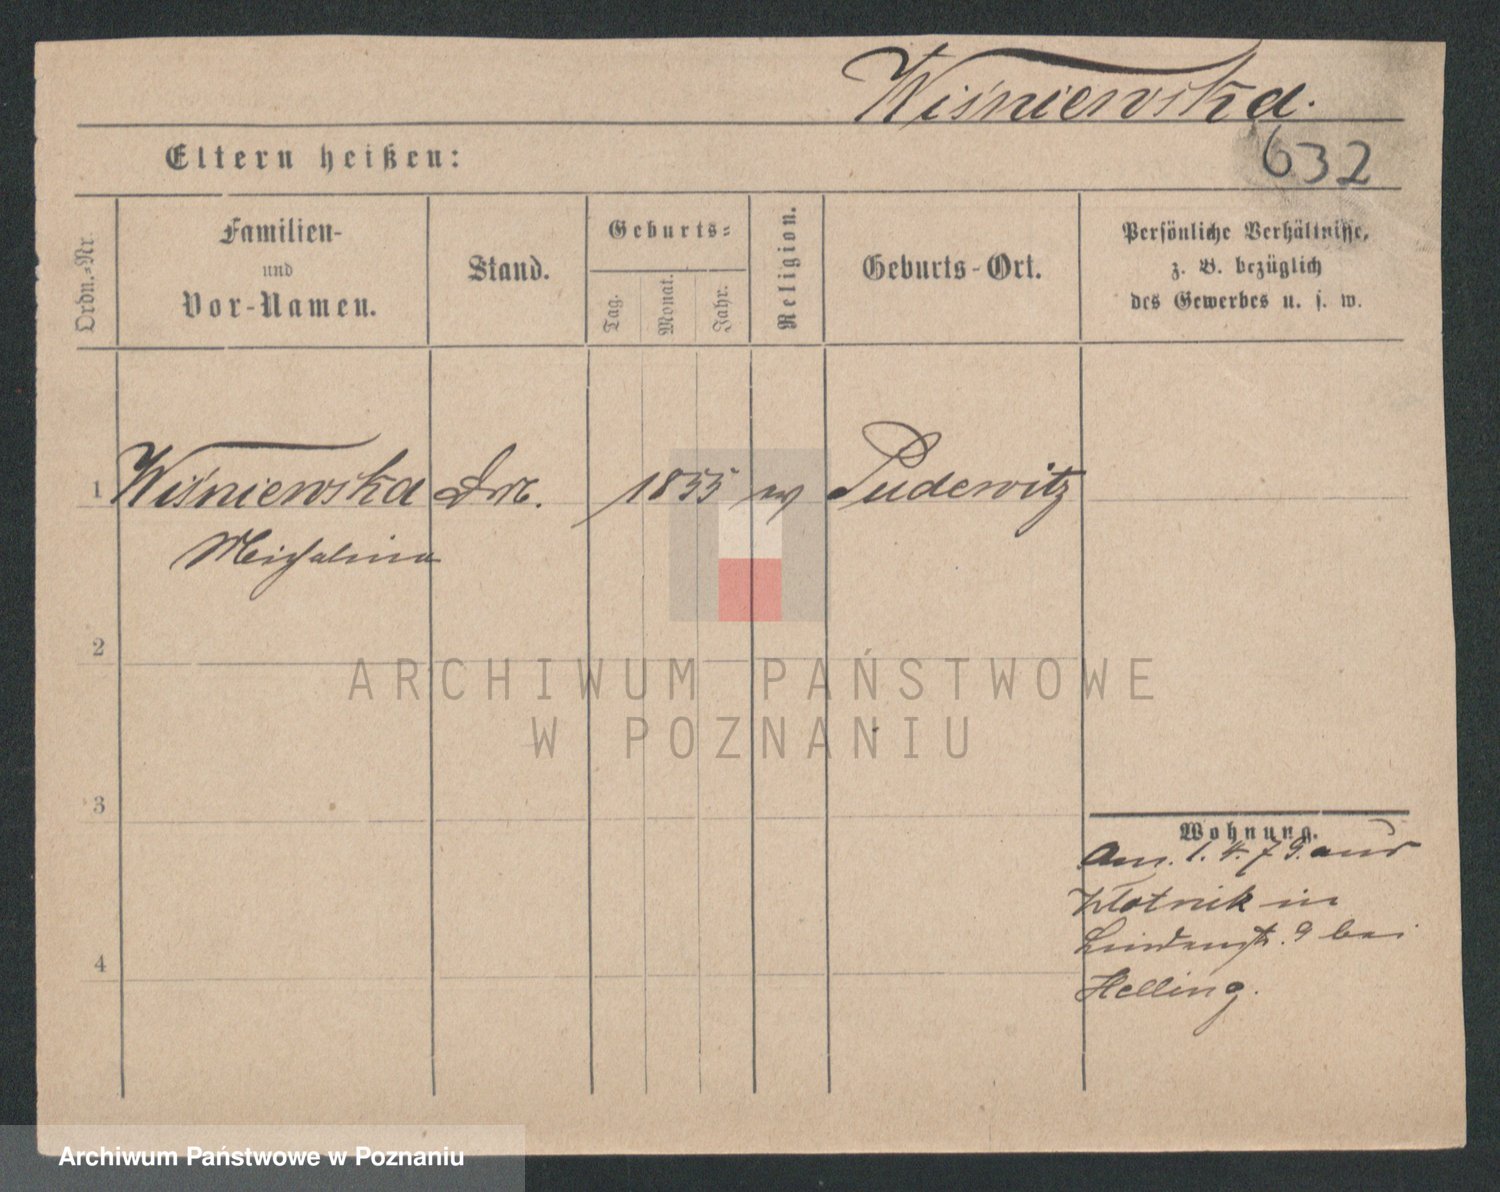 Wiśniewska.
632
Eltern heißen:
Ordn.-Nr.
Familien-
und
Vor-Namen.
Stand.
Geburts-
Tag.
Monat.
Jahr.
Religion.
Geburts-Ort.
Persönliche Verhältnisse,
z. B. bezüglich
des Gewerbes u. s. w.
1 Wiśniewska 1855 Pudewitz
Michalina
2
ARCHIWUM PAŃSTWOWE
W POZNANIU
3
4
Wohnung.
Am. 1.4.79. aus
Złotnik in
Lindenstr. 9 bei
Helling.
Archiwum Państwowe w Poznaniu